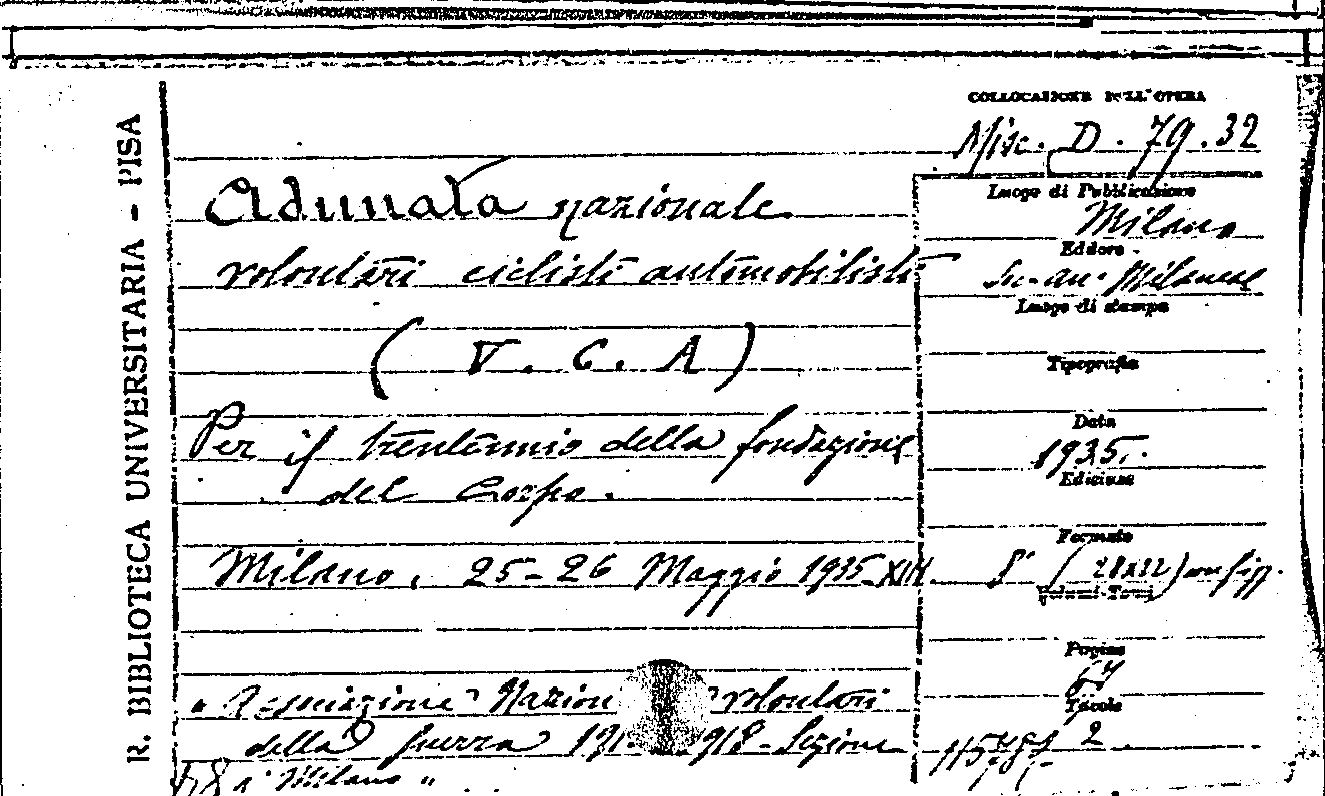 R. BIBLIOTECA UNIVERSITARIA - PISA
COLLOCAZIONE DELL'OPERA
Misc. D. 79.32
Adunata nazionale
volontari ciclisti automobilisti
( V. C. A )
Per il trentennio della fondazione
del Corpo.
Milano, 25-26 Maggio 1935-XIII.
" Associazione Nazion volontari
della guerra 191 918 - Sezione
Milano "
Luogo di Pubblicazione
Milano
Editore
An. Milanese
Luogo di stampa
Tipografia
Data
1935.
Edizione
Formato
8° ( 28x22) con figg.
Volumi-Tomi
Pagine
Tavole
2